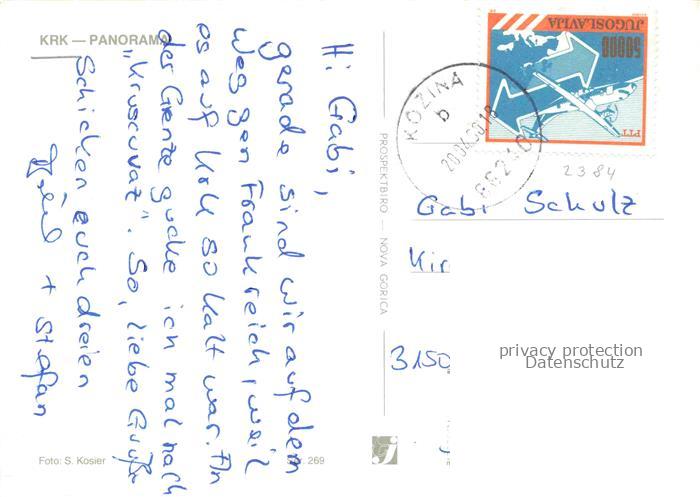 KRK — PANORAMA
Hi Gabi,
gerade sind wir auf dem
Weg gen Frankreich, weil
es auf Krk so kalt war. An
der Grenze gucke ich mal nach
So, liebe Grüße
schicken euch dreien
+ Stefan
Foto: S. Kosier
269
PROSPEKTBIRO — NOVA GORICA
JUGOSLAVIJA
50000
PTT
KOZINA
b
66240
2384
Gabi Schulz
Kir
3150
privacy protection
Datenschutz